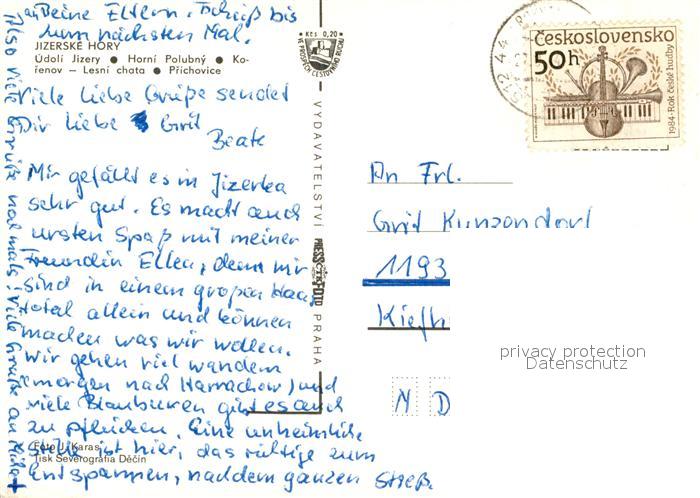 an Deine Eltern. Tschüß bis
zum nächsten Mal.
JIZERSKÉ HORY
Údolí Jizery ● Horní Polubný ● Ko-
řenov — Lesní chata ● Příchovice
Viele liebe Grüße sendet
Dir liebe Grit
Beate
Mir gefällt es in Jizerka
sehr gut. Es macht auch
ursten Spaß mit meiner
Freundin Ellen, denn wir
sind in einem großen
Hotel allein und können
machen was wir wollen.
Wir gehen viel wandern
(morgen nach Harrachov) und
viele Blaubeeren gibt es auch
zu pflücken. Eine unheimliche
Stille ist hier, das richtige zum
Entspannen, nach dem ganzen Streß.
Foto J. Karas
Tisk Severografia Děčín
Also viele Grüße nochmals! Viele Grüße an
Kčs 0,20
VE PROSPĚCH CESTOVNÍHO RUCHU
VYDAVATELSTVÍ PRESSFOTO PRAHA
Československo
50h
1984-Rok české hudby
An Frl.
Grit Kunzendorf
1193
Kiefh
privacy protection
Datenschutz
N D